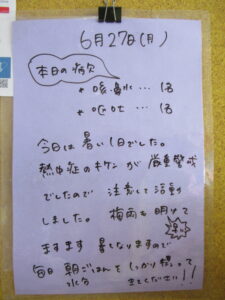 6月27日(月)
本日の病欠
＊咳・鼻水…1名
＊嘔吐…1名
今日は暑い1日でした。
熱中症のキケンが厳重警戒
でしたので 注意して活動
しました。 梅雨も明けて
早い
ますます 暑くなりますので
毎日 朝ごはんをしっかり摂って
水分
きてください!!